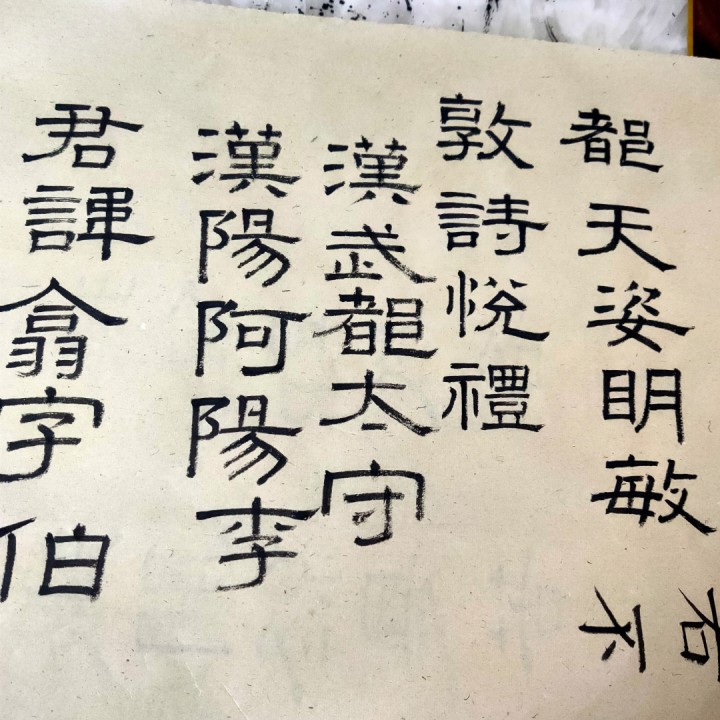 都天姿明敏
不
敦詩悅禮
漢武都太守
漢陽阿陽李
君諱翕字伯